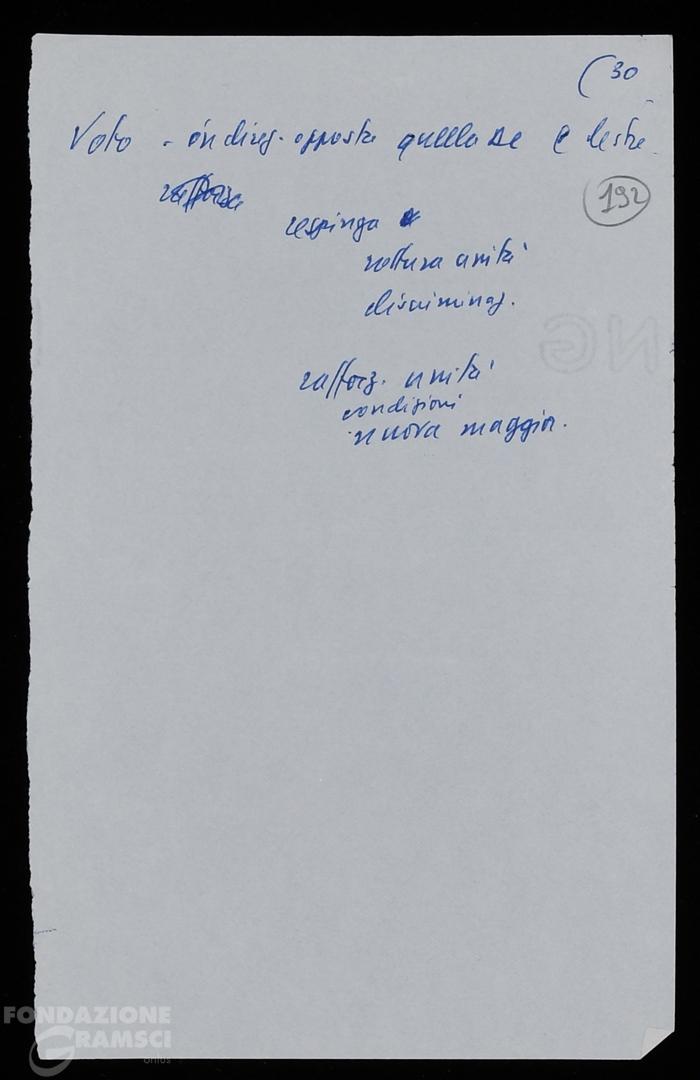 (30
Voto - in direz. opposta quella DC e destre
192
respinga
rottura unità
discriminaz.
rafforz. unità
condizioni
nuova maggior.
NG
FONDAZIONE
GRAMSCI
onlus